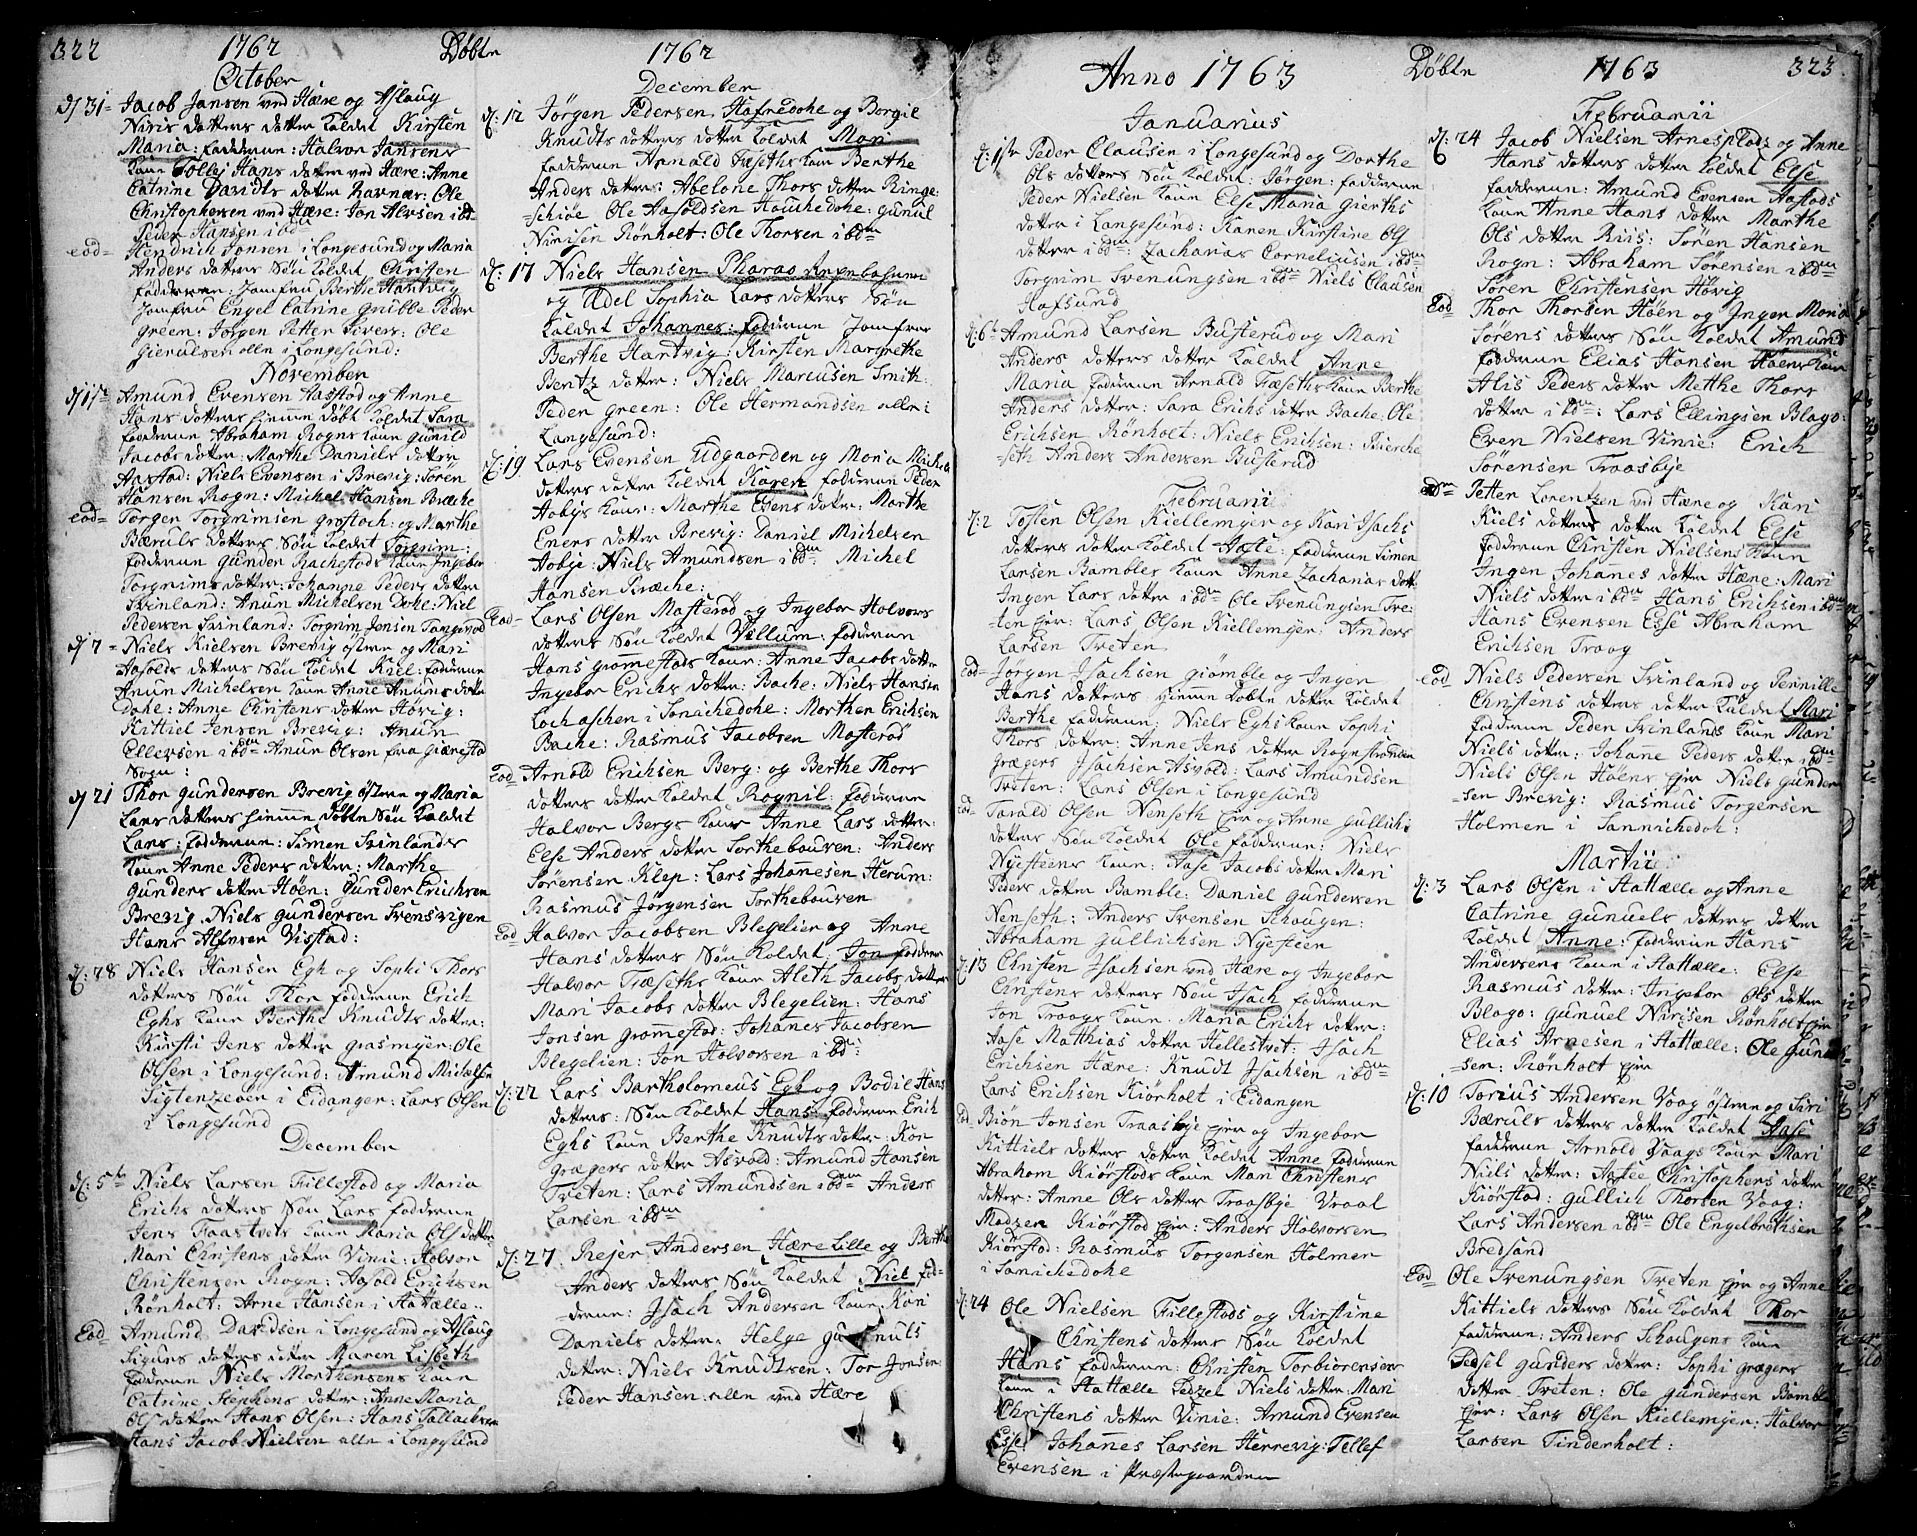 322
1762
Döbte
October
d 31 Jacob Jansen ved Hære og Aslaug
Niris dotters dotter Kaldet Kirsten
Maria: fadderne: Halvor Jansens
Kone Tollej Hans dotter ved Hære: Anne
Catrine Davidts dotter Ravnær: Ole
Christophersen ved Hære: Jon Alvsen ibd
Peder Hansen ibdm
eod Hendrich Jonsen i Longesund og Maria
Anders dotters Sön Kaldet Christen
fadderne: Jomfru Berthe Hartvig
Jomfru Engel Catrine Gribbe Peder
Green: Jörgen Petter Sivers: Ole
Gierulsen alle i Longesund:
November
Amund Evensen Aastad og Anne
Hans dotters hiemme döbt Kaldet Sara
fadderne Abraham Rogns Kone Gunild
Jacobs dotter: Marthe Daniels dotter
Aastad: Niels Evensen i Brevig: Sören
Hansen Rogn: Michel Hansen Kræche
eod Torgen Torgrimsen Grostoch: og Marthe
Bæruls dotters Sön Kaldet Torgrim:
fadderne Gunder Rachestads Kone Ingebor
Torgrims dotter: Johanne Peders dotter
Svinland: Anun Michelsen Dohe: Niel
Pedersen Svinland: Torgrim Jonsen Tangvald
d 7 Niels Kielsen Brevig östre og Mari
Aasolds dotters Sön Kaldet Kiel: fadderne
Anun Michelsen Kone Anne Anuns dotter
Dohe: Anne Christens dotter Hövig:
Kittiel Jensen Brevig: Anun
Ellevsen ibdm Amun Olsen fra Giærestad
Sogn:
d 21 Thor Gundersen Brevig östre og Maria
Lars dotters hiemme Döbte Sön Kaldet
Lars: fadderne: Simen Svinlands
Kone Anne Peders dotter: Marthe
Gunders dotter Höen: Gunder Erichsen
Brevig. Niels Gundersen Svensvigen
Hans Alfvsen Vistad:
d: 28 Niels Hansen Egh og Sophi Thors
dotters Sön Thor fadderne Erich
Eghs Kone Berthe Knudts dotter:
Kirsti Jens dotter Grasmyer: Ole
Olsen i Longesund: Amund
i Eidanger: Lars Olsen
i Longesund
December
d: 5te Niels Larsen Fillestad og Maria
Erichs dotters Sön Lars fadderne
Jens Traastvets Kone Maria Ols dotter
Mari Christens dotter Vinie: Halvor
Christensen Rogn: Aasold Erichsen
Rönholt: Arne Hansen i Hattælle:
Eod Amund Davidsen i Longesund og Aslaug
Sigurs dotters dotter Maren Lisbeth
fadderne Niels Morthensens Kone
Catrine Stephens dotter: Anne Maria
Ols dotter Hans Olsen: Hans Tallachsen
Hans Jacob Nielsen alle i Longesund
1762
December
d: 12 Jörgen Pedersen Hafredohe og Borgil
Knudts dotters dotter Kaldet Mari
fadderne Arnold Træseths Kone Berthe
Anders dotter: Abelone Thors dotter Ringe:
=schiöe Ole Aasoldsen Houchedohe: Gunul
Nirisen Rönholt: Ole Thorsen ibdm
d: 17 Niels Hansen Pharao
og Adel Sophia Lars dotters Sön
Kaldet Johannes: fadderne Jomfrue
Berthe Hartvig: Kirsten Margrethe
Bentz dotter: Niels Marcusen Smith:
Peder Green: Ole Hermandsen alle i
Langesund:
d: 19 Lars Evensen Udgaarden og Maria Michels
dotters dotter Kaldet Karen fadderne Peder
Aabys Kone: Marthe Evens dotter: Marthe
Eners dotter Brevig: Daniel Michelsen
Aabye: Niels Amundsen ibdm Michel
Hansen Kræche:
Eod Lars Olsen Masteröd og Ingebor Halvors
dotters Sön Kaldet Villum: fadderne
Hans Gromestads Kone: Anne Jacobs dotter
Ingebor Erichs dotter: Bache: Niels Hansen
Lochaschen i Sanichedohe: Morthen Erichsen
Bache: Rasmus Jacobsen Masteröd
Eod Arnold Erichsen Berg: og Berthe Thors
dotters dotter Kaldet Rognil: fadderne
Halvor Bergs Kone Anne Lars dotter:
Else Anders dotter Torthebouren: Anders
Sörensen Klep: Lars Johannesen Herum:
Rasmus Jörgensen Torthebouren
Eod Halvor Jacobsen Blegelier og Anne
Hans dotters Sön Kaldet: Jon fadderne
Halvor Træseths Kone Aleth Jacobs dotter
Mari Jacobs dotter Blegelien: Hans
Jonsen Gromestad: Johanes Jacobsen
Blegelien: Jon Halvorsen ibd:
d: 22 Lars Bartholomeus Egh og Bodil Hans
dotters: Sön Kaldet Hans: fadderne Erich
Eghs Kone Berthe Knudts dotter: Kor
Grægers dotter Asvold: Amund Hansen
Treten: Lars Amundsen ibdm Anders
Larsen ibdm
d: 27 Rejer Andersen Hære Lille og Berthe
Anders dotters Sön Kaldet Niel fad=
derne: Jsach Andersen Kone Kari
Daniels dotter: Helge Gunnuls
dotter: Niels Knudtsen: Tor Jonsen:
Peder Hansen alle ved Hære
Anno 1763
Döbte
Januarius
d: 1te Peder Clausen i Longesund og Dorthe
Ols dotters Sön Kaldet: Jörgen: fadderne
Peder Nielsen Kone Else Maria Gierths
dotter i Langesund: Karen Kirstine Ols
dotter ibdm: Zacharias Corneliusen ibdm
Torgrim Svenungsen ibdm Niels Clausen
Hafsund
d: 6te Amund Larsen Busterud og Mari
Anders dotters dotter Kaldet Anne
Maria fadderne Arnold Træseths Kone Berthe
Anders dotter: Sara Erichs dotter Bache: Ole
Erichsen Rönholt: Niels Erichsen: Kierche
=seth Anders Andersen Busterud
Februarii
d: 2 Tosten Olsen Kiellemyer og Kari Jsachs
dotters dotter Kaldet Aaste: fadderne Simen
Larsen Bambles Kone Anne Zacharias dott
Inger Lars dotter ibdm Ole Svenungsen Tre=
ten ejer: Lars Olsen Kiellemyer: Anders
Larsen Treten
Eod Jörgen Jsachsen Giömble og Inger
Hans dotters hiemme Döbte dotter Kaldet
Berthe fadderne: Niels Eghs Kone Sophi
Thors dotter: Anne Jens dotter Rognstranden
Grægers Jsachsen Asvold: Lars Amundsen
Treten: Lars Olsen i Longesund
Eod Tarald Olsen Nenseth ejer og Anne Gullichs
dotters Sön Kaldet Ole fadderne: Niels
Nyesteens Kone: Aase Jacobs dotter Mari
Peders dotter Bamble: Daniel Gundersen
Nenseth: Anders Svensen Schougen:
Abraham Gullichsen Nyesteen
d: 13 Christen Jsachsen ved Hære og Ingebor
Christens dotters Sön Jsach fadderne
Jon Traags Kone Maria Erichs dotter:
Aase Matthias dotter Hellestvet: Jsach
Erichsen Hære: Knudt Jsachsen ibdm
Lars Erichsen Kiörholt i Eidangen
Eod Biön Jonsen Traasbye ejer og Ingebor
Kittiels dotters dotter Kaldet Anne fadderne
Abraham Kiörstads Kone Mari Christens
dotter: Anne Ols dotter Traasbye Vraal
Madzen Kiörstad ejer: Anders Halvorsen
Kiörstad: Rasmus Torgensen Holmen
i Sanichedohe
d: 24 Ole Nielsen Fillestads og Kirstine
Christens dotters Sön Kaldet
Hans fadderne: Christen Torbiörensens
Kone i Hattælle Zedzel Niels dotter: Mari
Christens dotter Vinie: Amund Evensen
Esse: Johannes Larsen Herrevig: Tellef
Evensen i Præstegaarden
1763
323
Februarii
d: 24 Jacob Nielsen Arnesplads og Anne
Hans dotters dotter Kaldet Else
fadderne: Amund Evensen Aastads
Kone Anne Hans dotter Marthe
Ols dotter Riis: Sören Hansen
Rogn: Abraham Sörensen ibdm
Sören Christensen Hövig
Eod Thor Thorsen Höen og Inger Maria
Sörens dotters Sön Kaldet Amund
fadderne Elias Hansen Höens Kone
Alis Peders dotter Metthe Thors
dotter ibdm: Lars Ellingsen Blago:
Even Nielsen Vinie: Erich
Sörensen Traasbye
Petter Lorentzen ved Hære og Kari
Kiels dotters dotter Kaldet Else
fadderne Christen Nielsens Kone
Inger Johannes dotter Hære: Mari
Niels dotter ibdm Hans Erichsen ibdm
Hans Evensen Esse Abraham
Erichsen Traag
Eod Niels Pedersen Svinland og Pernille
Christens dotters dotter Kaldet Mari
fadderne Peder Svinlands Kone Mari
Niels dotter: Johanne Peders dotter ibdm
Niels Olsen Höens ejer Niels Gunder
=sen Brevig: Rasmus Torgersen
Holmen i Sannichedoh:
Martii
d: 3 Lars Olsen i Hattælle og Anne
Catrine Gunuels dotters dotter
Kaldet Anne: fadderne Hans
Andersens Kone i Hattælle: Else
Rasmus dotter: Ingebor Ols dotter
Blago: Gunuel Nirisen Rönholt ejer
Elias Arnesen i Hattælle: Ole Gunuel
sen: Rönholt ejer
d: 10 Torius Andersen Vaag östre og Siri
Bæruls dotters dotter Kaldet Aase
fadderne Arnold Vaags Kone Mari
Niels dotter: Aasee Christophers dotter
Kiörstad: Gullich Thorsen Vaag:
Lars Andersen ibdm Ole Engelbrethsen
Bredsand
Eod Ole Svenungsen Treten ejer og Anne
Kittiels dotters Sön Kaldet Thor
fadderne: Anders Schougens Kone
Zedsel Gunders dotter: Sophi Grægers
dotter Treten: Ole Gundersen Bamble
ejer: Lars Olsen Kiellemyer: Halvor
Larsen Tinderholt: